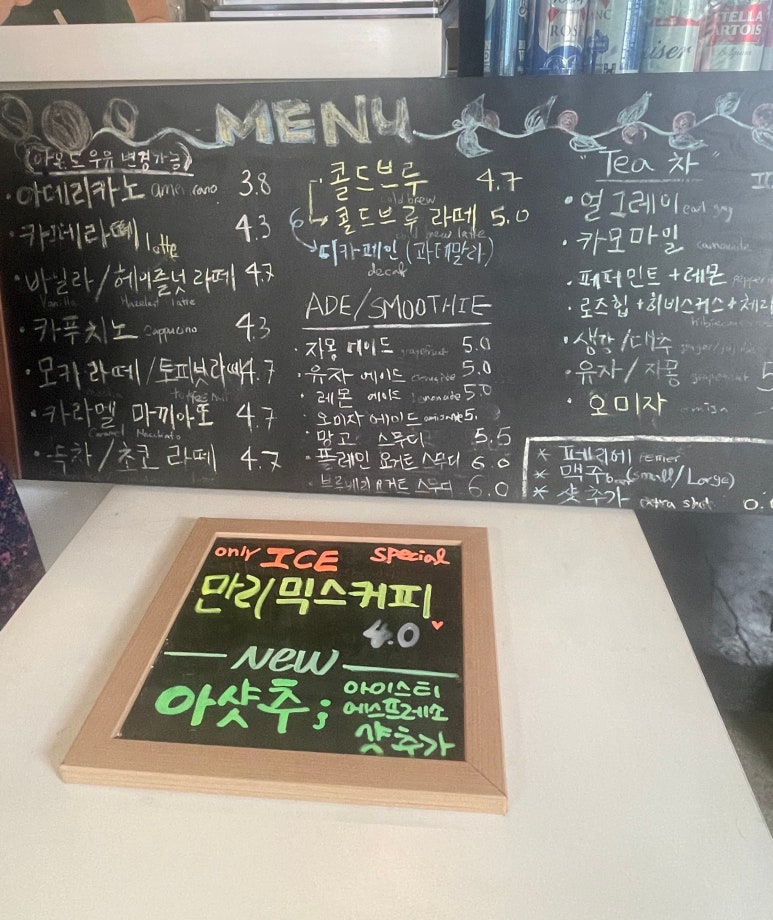 MENU
(아몬드우유 변경가능)
· 아메리카노 americano 3.8
· 카페라떼 latte 4.3
· 바닐라/헤이즐넛 라떼 4.7
Vanilla Hazelnut latte
· 카푸치노 Cappucino 4.3
· 모카라떼/토피넛라떼 4.7
toffee nut
· 카라멜 마끼아또 4.7
Caramel Macchiato
· 녹차/초코 라떼 4.7
콜드브루 4.7
cold brew
콜드브루 라떼 5.0
cold brew latte
디카페인 (과테말라)
decaf
ADE/SMOOTHIE
· 자몽 에이드 grapefruit 5.0
· 유자 에이드 5.0
· 레몬 에이드 lemonade 5.0
· 오미자 에이드 5.
· 망고 스무디 5.5
· 플레인 요거트 스무디 6.0
· 블루베리 요거트 스무디 6.0
"Tea 차"
· 얼그레이 earl gray
· 카모마일
· 페퍼민트 + 레몬
· 로즈힙 + 히비스커스 + 체리
· 생강/대추
· 유자/자몽 5
· 오미자 omija
* 맥주 beer (small/Large)
* 샷 추가 extra shot 0.
only ICE special
만리믹스커피
4.0
NEW
아샷추 ; 아이스티
에스프레소
샷추가
STELLA
ARTOIS